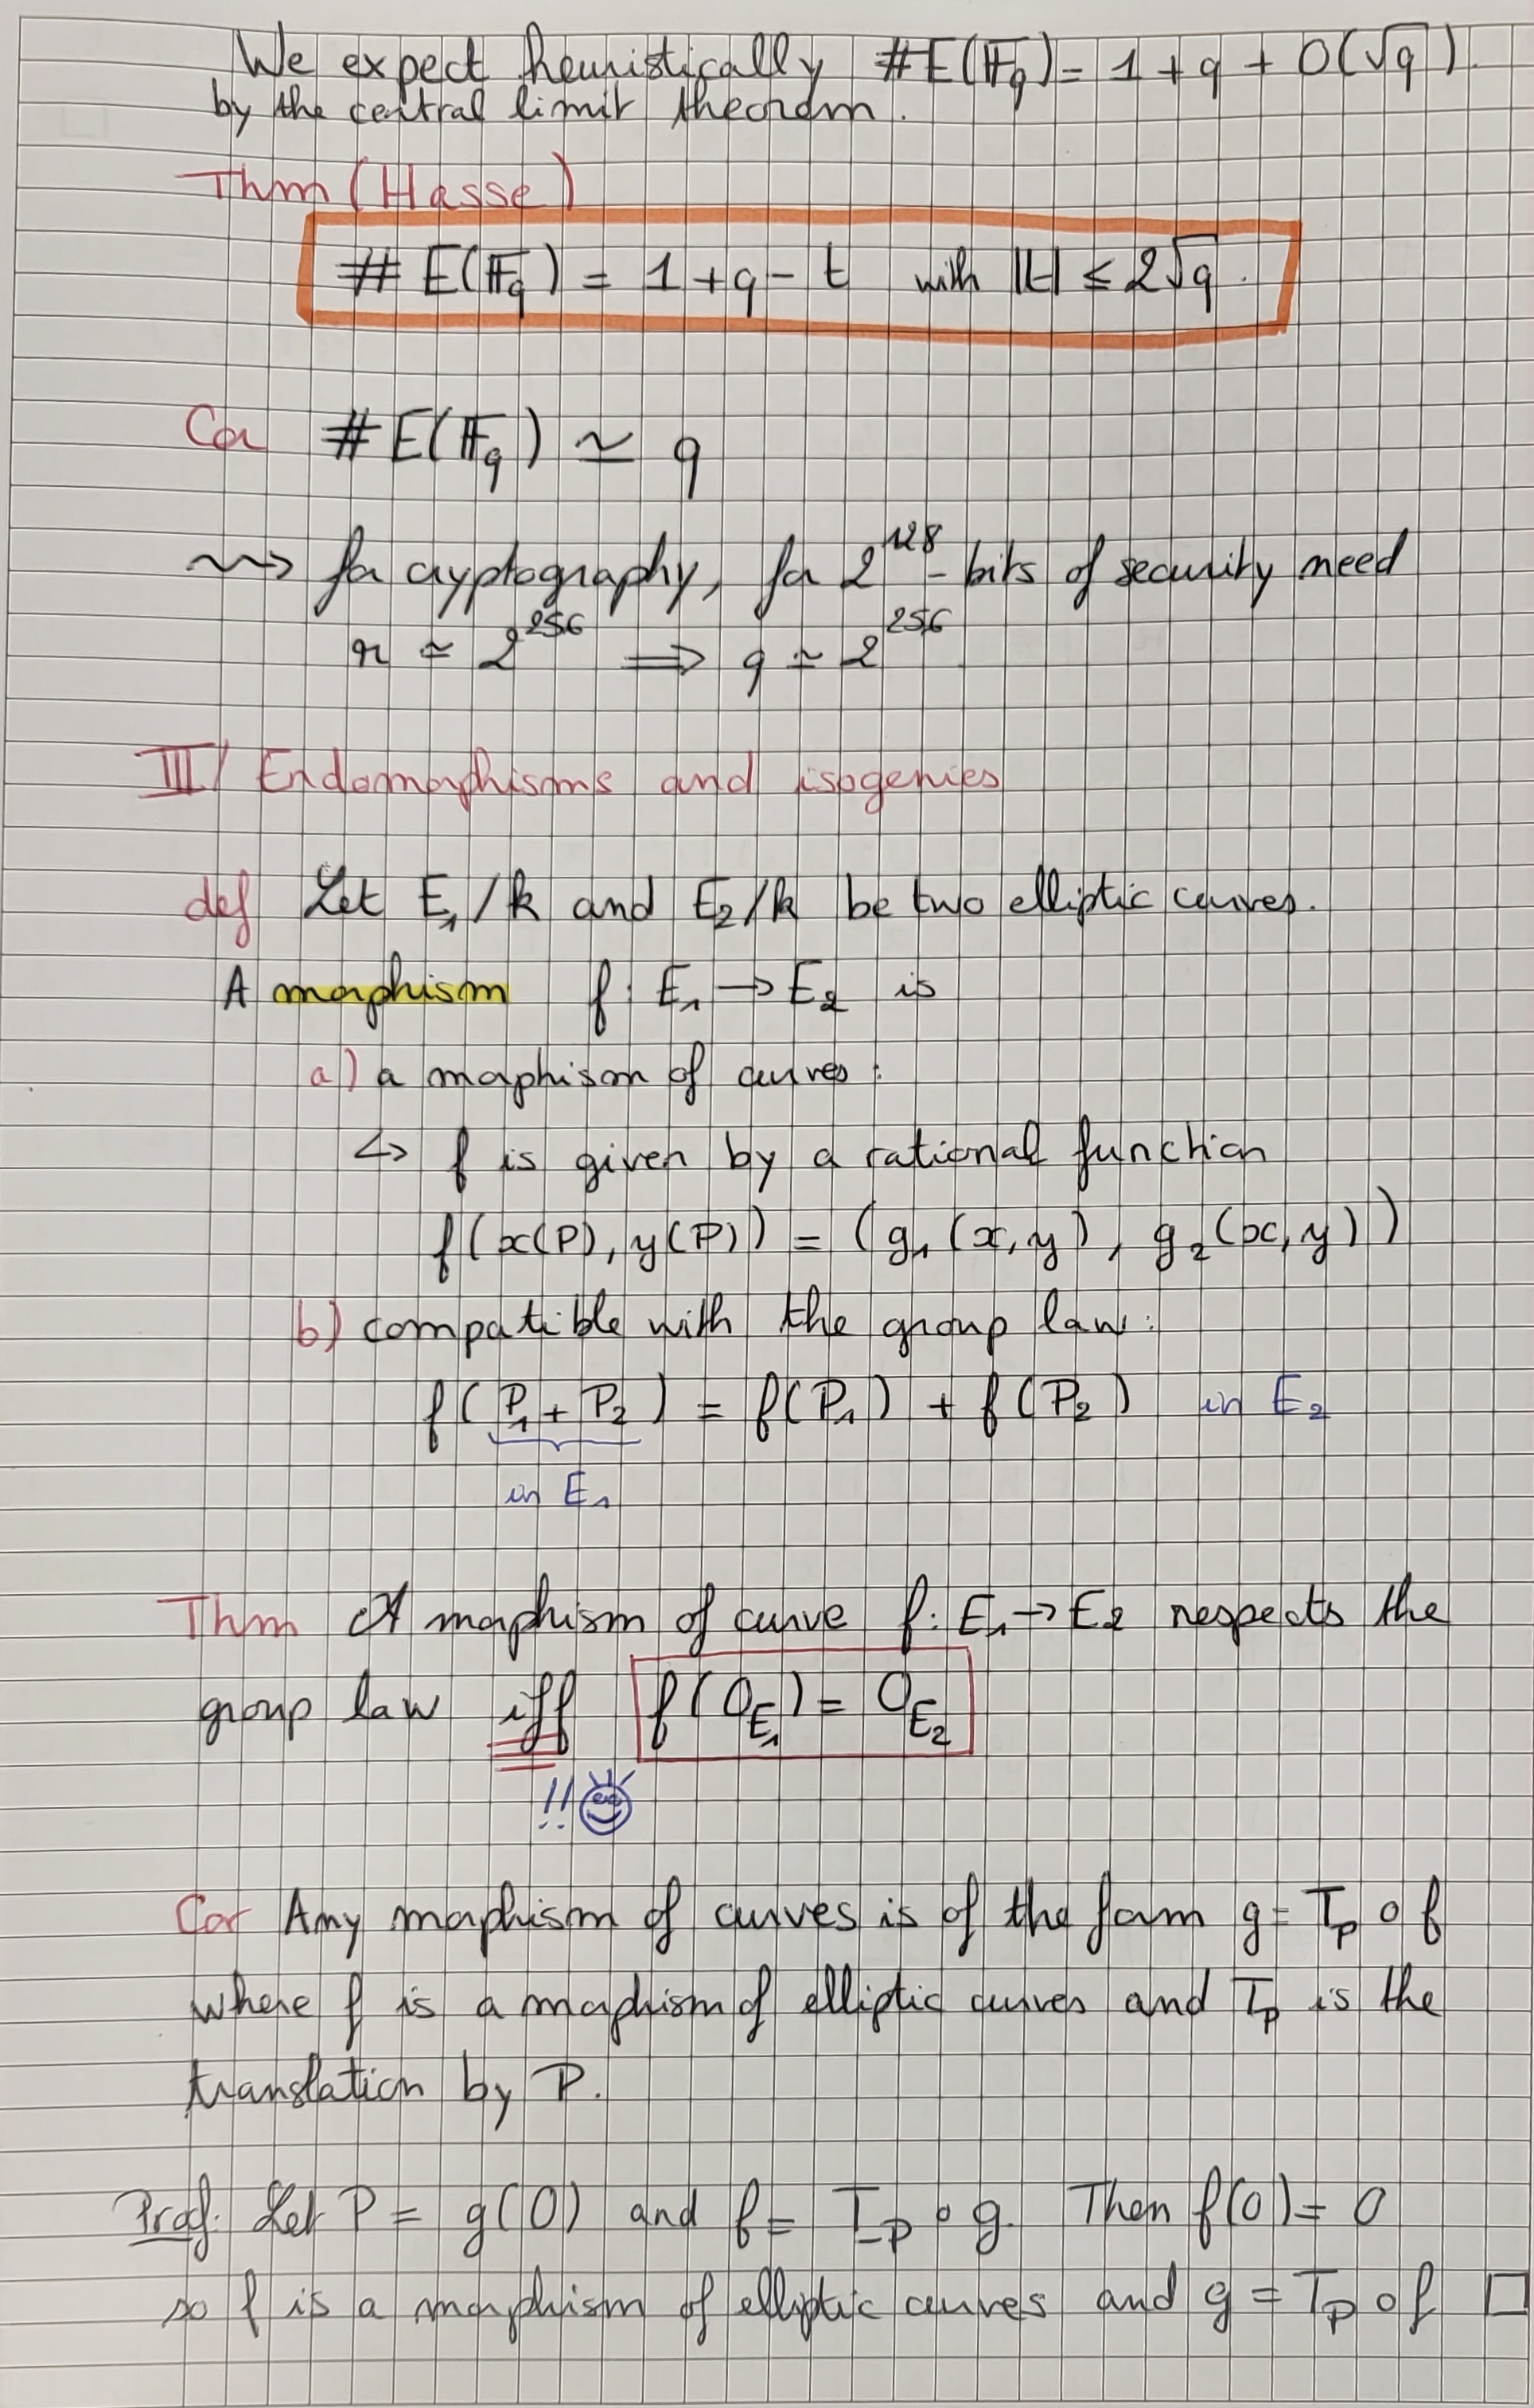 We expect heuristically #E(𝔽_q) = 1 + q + O(√q).
by the central limit theorem.
Thm (Hasse)
# E(𝔽_q) = 1 + q - t with |t| ≤ 2√q.
Cor #E(𝔽_q) ≃ q
⇝ for cryptography, for 2^128 - bits of security need
n ≃ 2^256 ⟹ q ≃ 2^256
III/ Endomorphisms and isogenies
def Let E₁/k and E₂/k be two elliptic curves.
A morphism f: E₁ → E₂ is
a) a morphism of curves:
↪ f is given by a rational function
f(x(P), y(P)) = (g₁(x,y), g₂(x,y))
b) compatible with the group law:
f(P₁ + P₂) = f(P₁) + f(P₂) in E₂
in E₁
Thm A morphism of curve f: E₁ → E₂ respects the
group law iff f(0_E₁) = 0_E₂
!!
Cor Any morphism of curves is of the form g = T_P ∘ f
where f is a morphism of elliptic curves and T_P is the
translation by P.
Proof: Let P = g(0) and f = T_-P ∘ g. Then f(0) = 0
so f is a morphism of elliptic curves and g = T_P ∘ f □